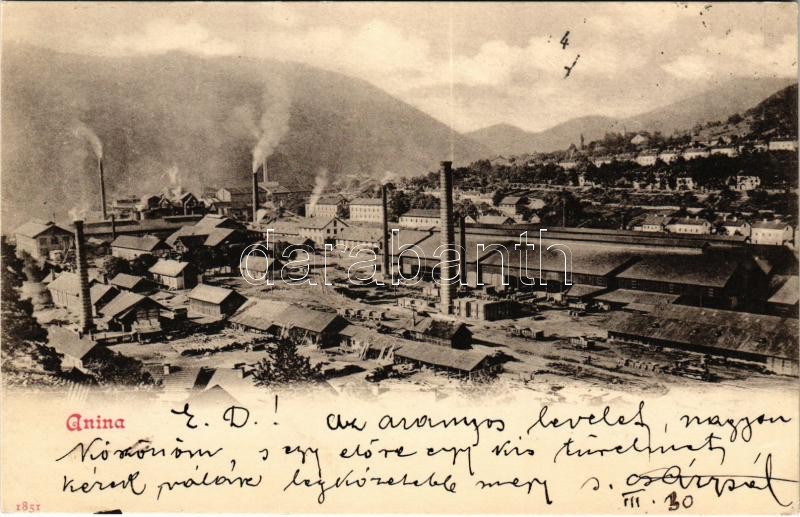 4
darabanth
Anina
E. D.! Az aranyos levelet, nagyon
köszönöm, s egy előre egy kis türelmet
kérek válára legközelebb meg s.
III. 30
1851